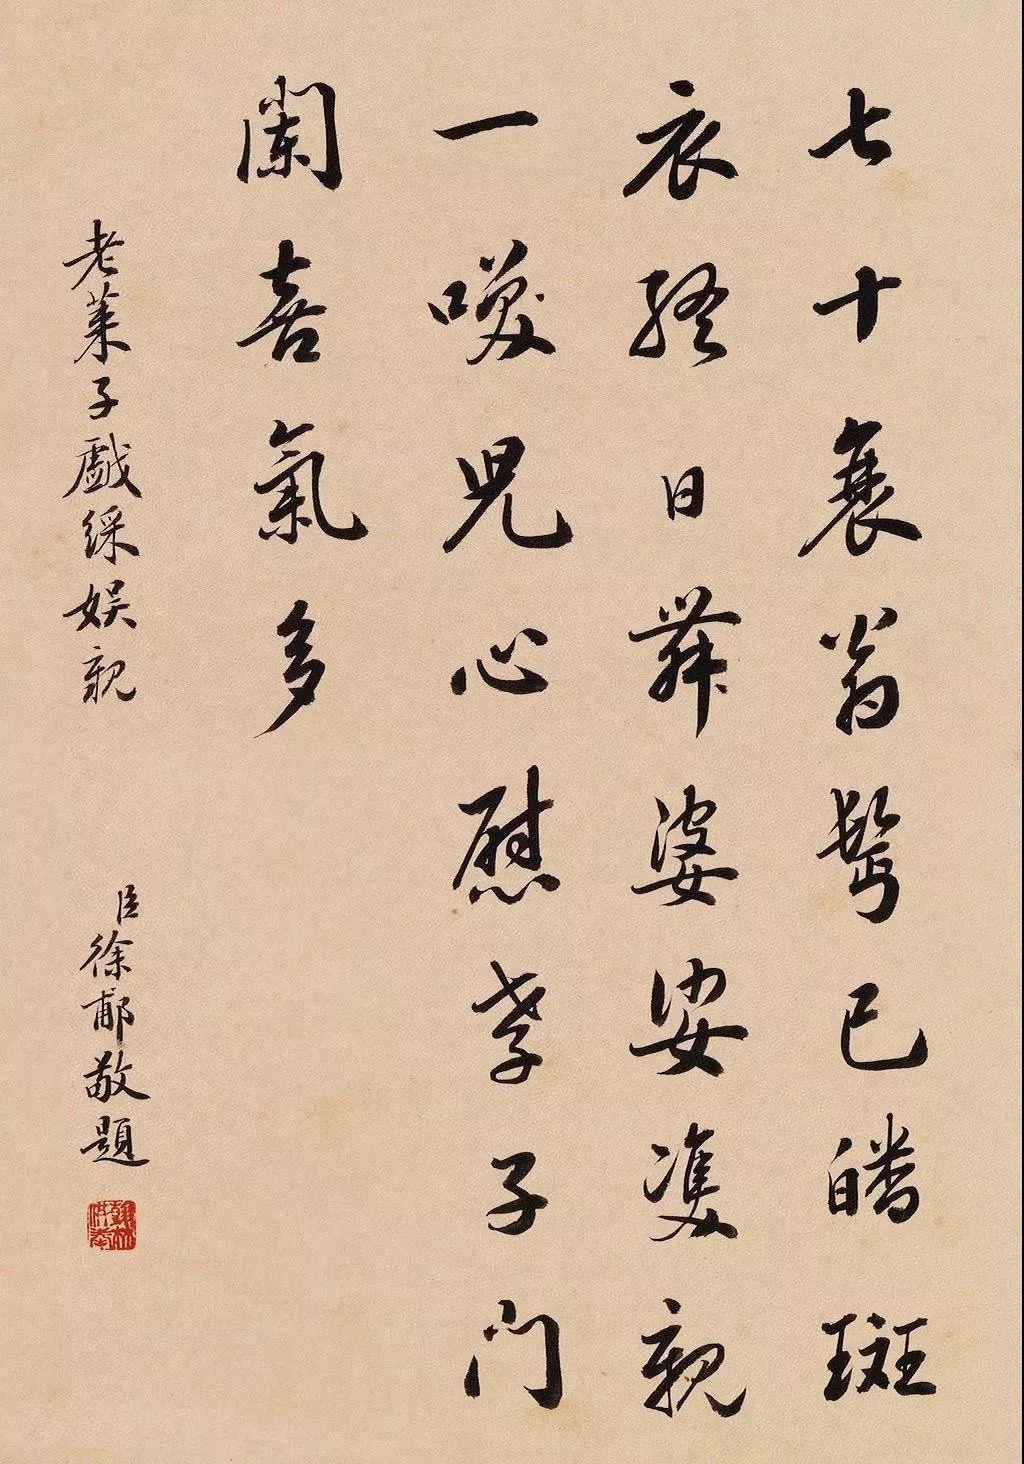 七十衰翁鬢已皤斑
衣終日舞婆娑雙親
一咲兒心慰孝子門
闌喜氣多
老萊子戲綵娛親
臣徐郙敬題